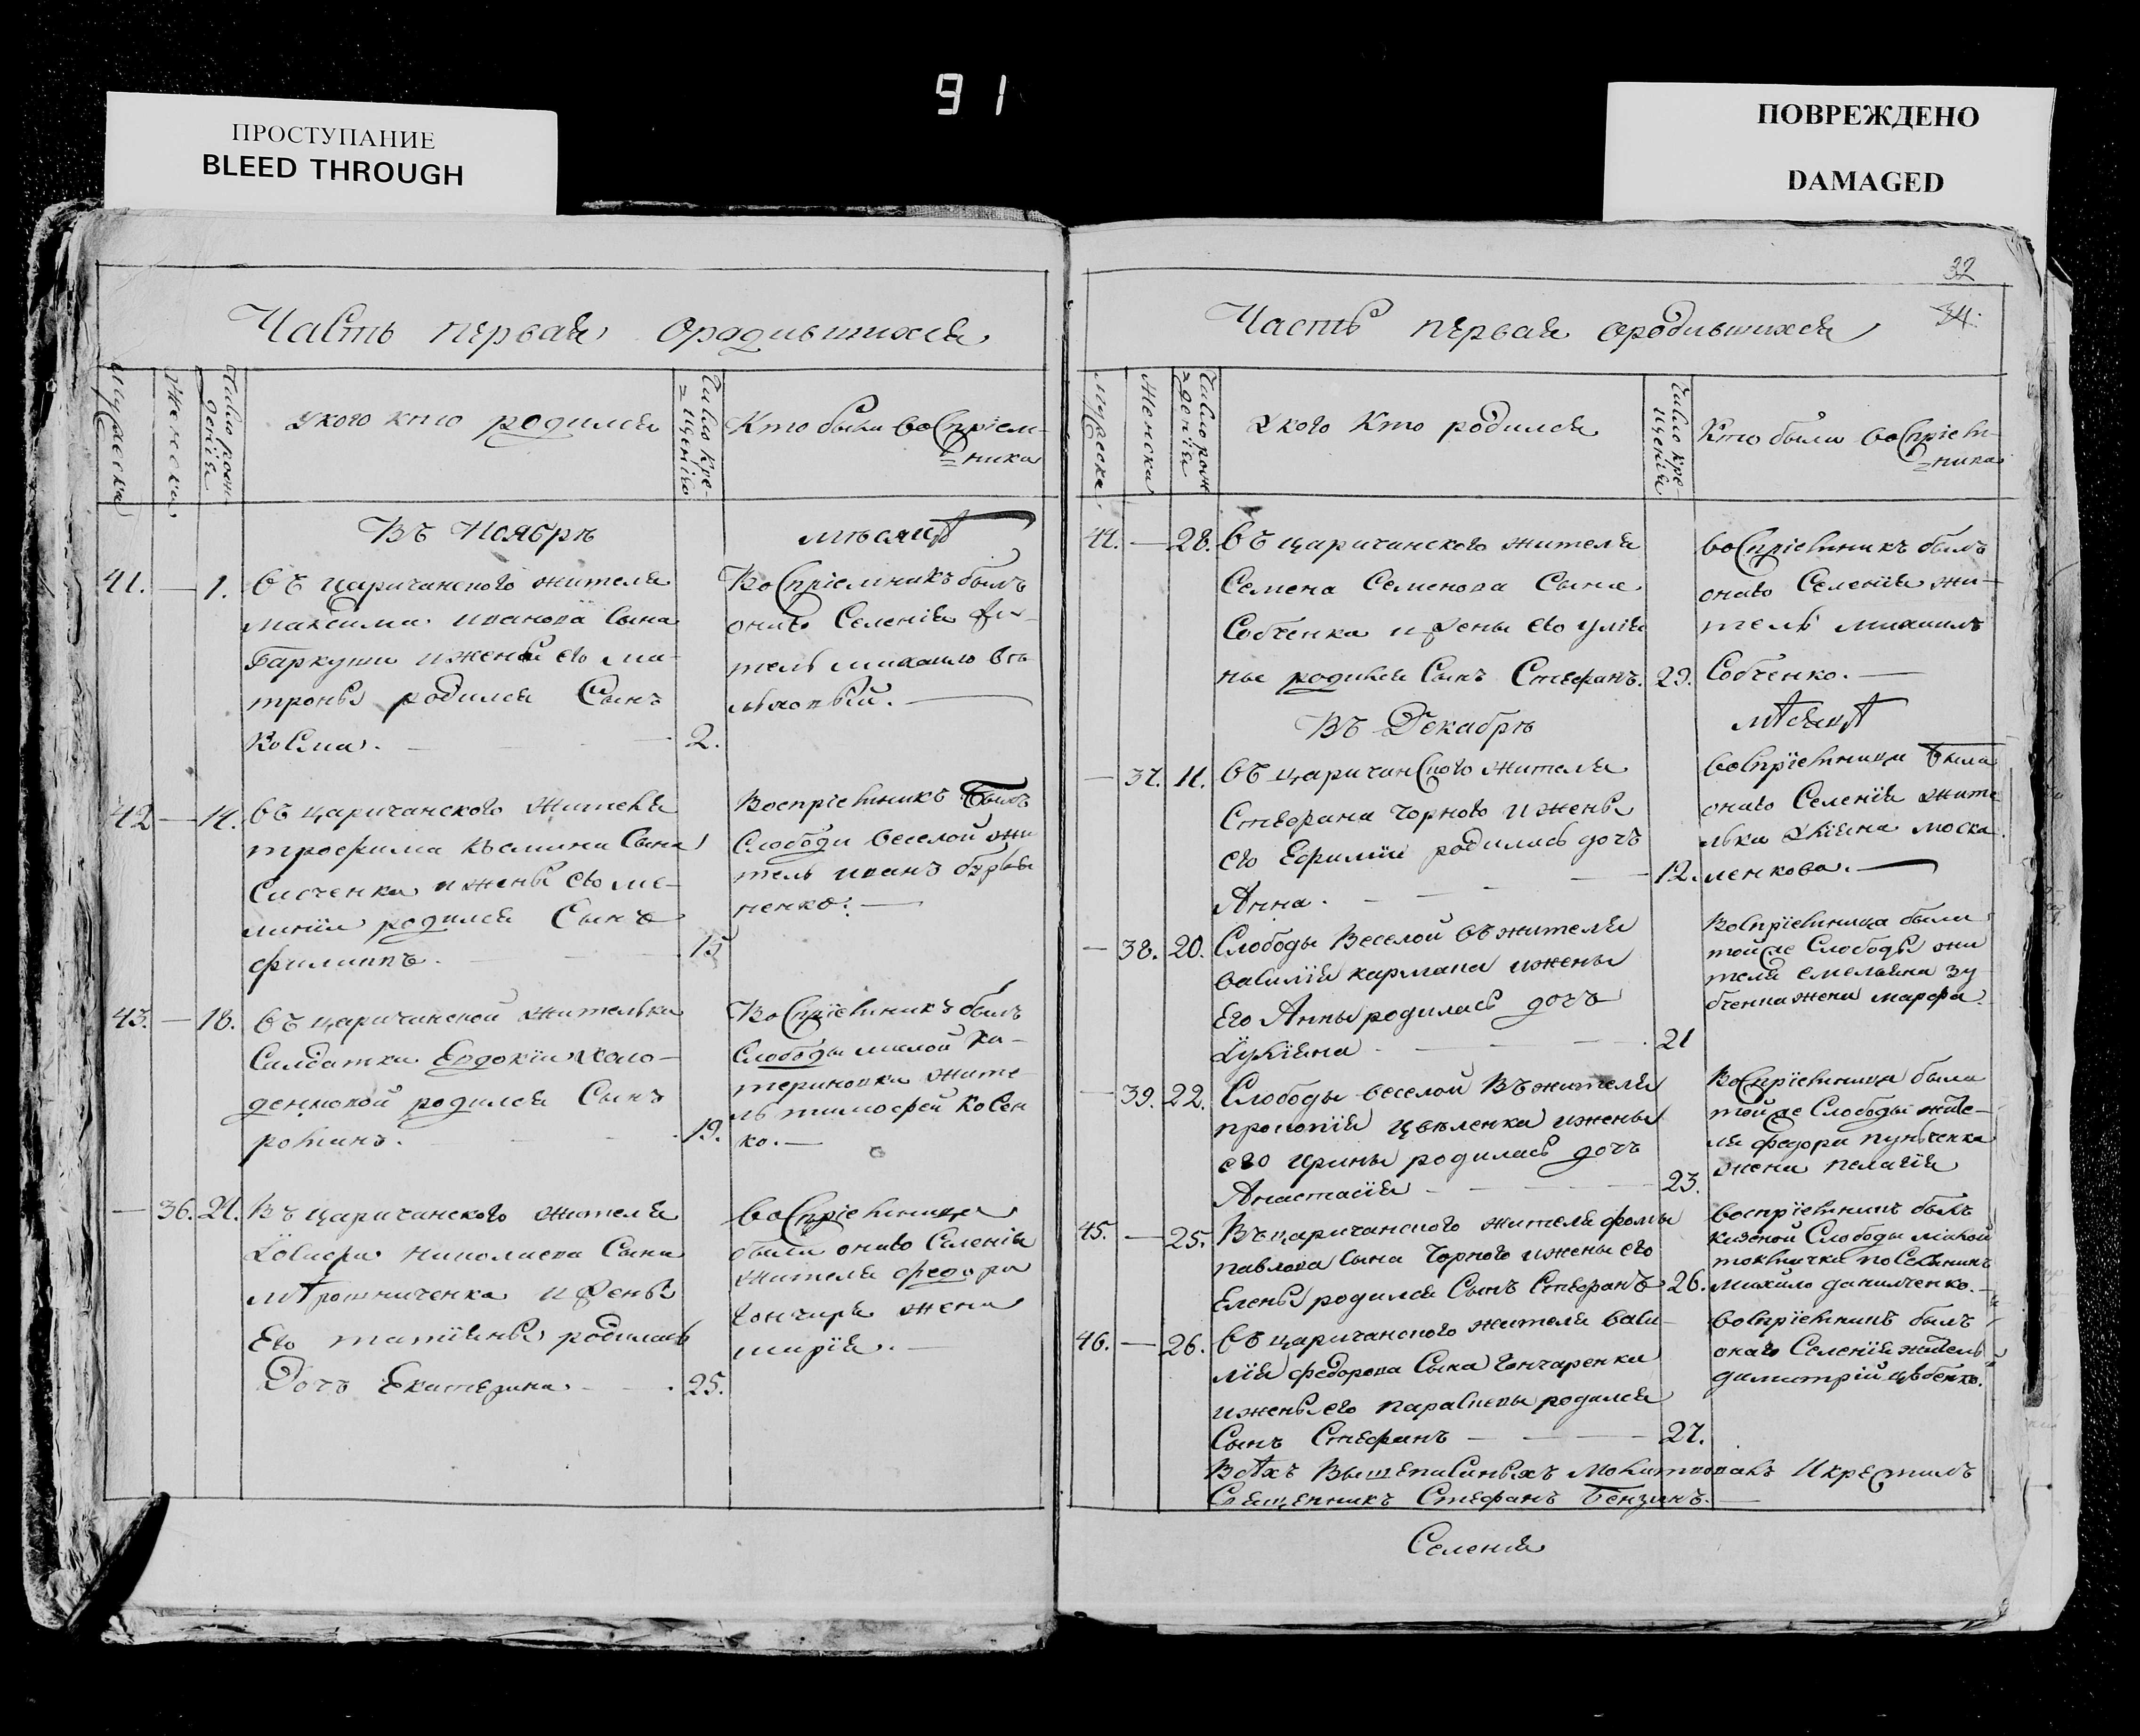 91
ПРОСТУПАНИЕ
BLEED THROUGH
ПОВРЕЖДЕНО
DAMAGED
Часть первая ородившихся
Мужеска
Женска
Число рож-
дения
укого кто родился
Число кре-
=щению
Кто были воспріем-
=ника
Въ Ноябрѣ
мѣсяцѣ
41. — 1.
въ царичанского жителя
максима иванова сына
Баркуши ижены его ма-
троны родился Сынъ
Косма.
2.
Воспріемникъ былъ
онаго Селенія жи-
тель михаило
42 — 14.
въ царичанского жителя
трофима Сына
ижены его ме-
ланіи родился Сынъ
филиппъ.
15
Воспріемникъ былъ
Слободи веселой жи
тель иванъ
ненко. —
43. — 18.
въ царичанской жителька
Салдатка Евдокіи холо-
деннокой родился Сынъ
романъ.
19.
Воспріемникъ былъ
Слободы малой Ка-
териновки жите-
ль тимофей Косен
ко. —
— 36. 24.
Въ царичанского жителя
Іосифа николаева Сына
мѣрошниченка ижены
Его татіяны родилась
Дочь Екатерина
25.
воспріемница
была онаго Селенія
жителя федора
гончара жена
марія. —
32
34.
Часть первая ородившихся
Мужеска
Женска
Число рож
=денія
Укого Кто родился
Число кре-
щенія
Кто были воспріем-
=ника
44. — 28.
въ царичанского жителя
Семена Семенова Сына
Собченка ижены его улія
ны родился Сынъ Стефанъ.
29.
воспріемникъ былъ
онаго Селенія жи-
тель михаилъ
Собченко. —
Въ Декабрѣ
мѣсяцѣ
— 37. 11.
въ царичанского жителя
Стефана Чорного ижены
его Ефиміи родилась дочь
Анна.
12.
воспріемница была
онаго Селенія жите
лька моска
ленкова. —
— 38. 20.
Слободы Веселой въ жителя
василія кармана ижены
Его Анны родилась дочь
Іуліяна
21
Воспріемница была
тойже Слободы жи
теля емельяна зу
бченка жена марфа.
— 39. 22.
Слободы веселой Въ жителя
прокопія цвѣленка ижены
его ирины родилась дочь
Анастасія
23.
Воспріемница была
тойже Слободы жите-
ля федора
жена пелагія
45. — 25.
Въ царичанского жителя фомы
павлова сына Чорного ижены его
Елены родился Сынъ Стефанъ
26.
воспріемникъ былъ
казеной Слободы малой
поселянинъ
михаило данилченко. —
46. — 26.
въ царичанского жителя васи-
лія федорова Сына Гончаренка
ижены его параскевы родился
Сынъ Стефанъ
27.
воспріемникъ былъ
онаго Селенія житель
димитрій цѣбенко.
Всѣхъ Вышеписаныхъ Молитвовалъ Икрестилъ
Священникъ Стефанъ Бензинъ. —
Селенія